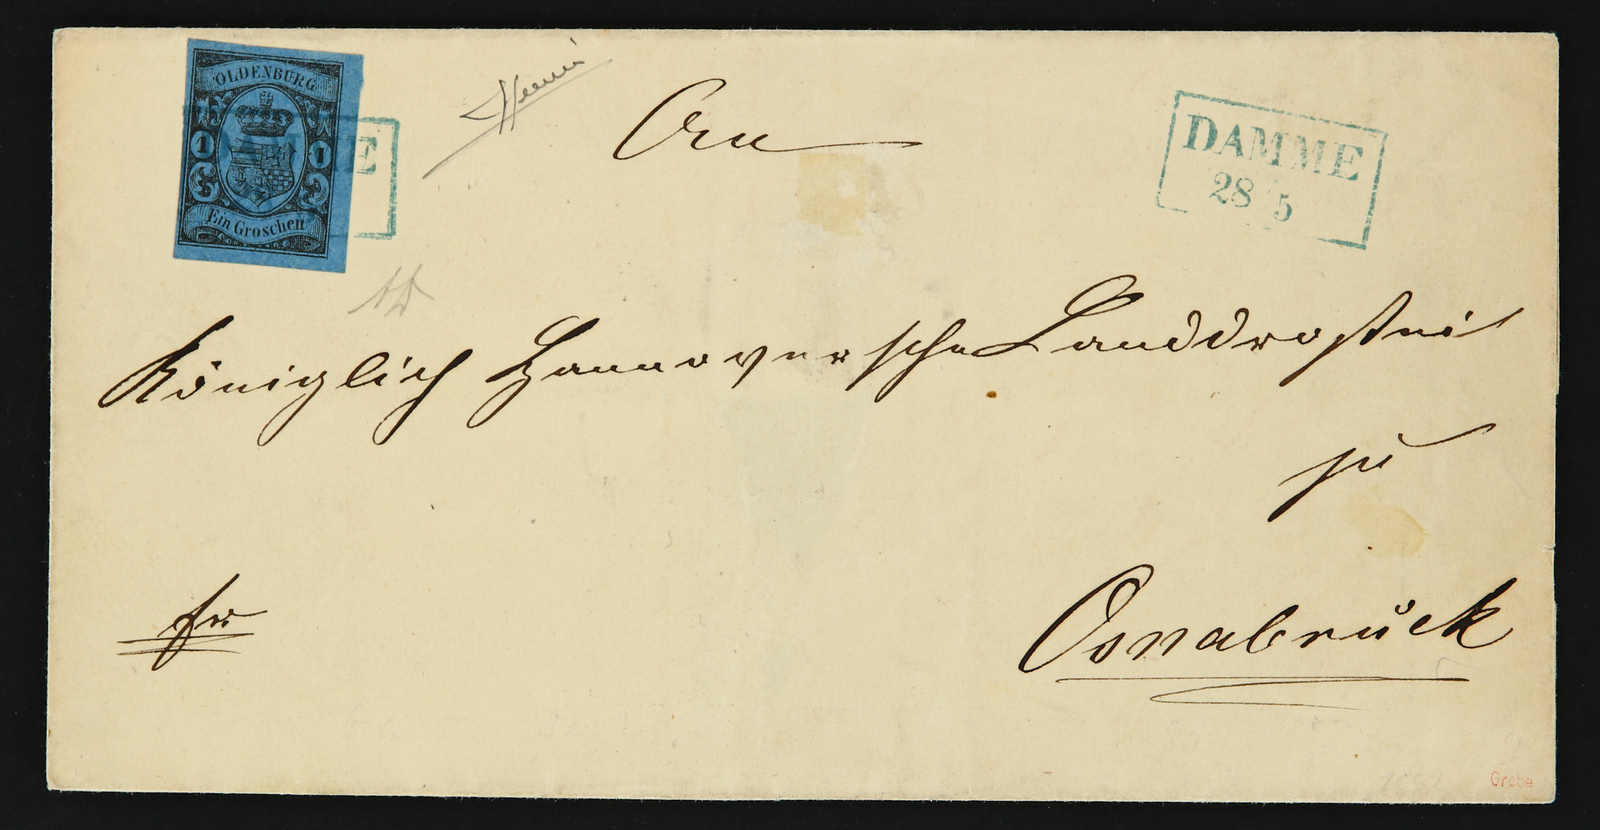 OLDENBURG
1 1
Ein Groschen
E
DAMME
28 5
An
Königlich Hannoversche Landdrostei
zu
Osnabrück
fr
Grobe